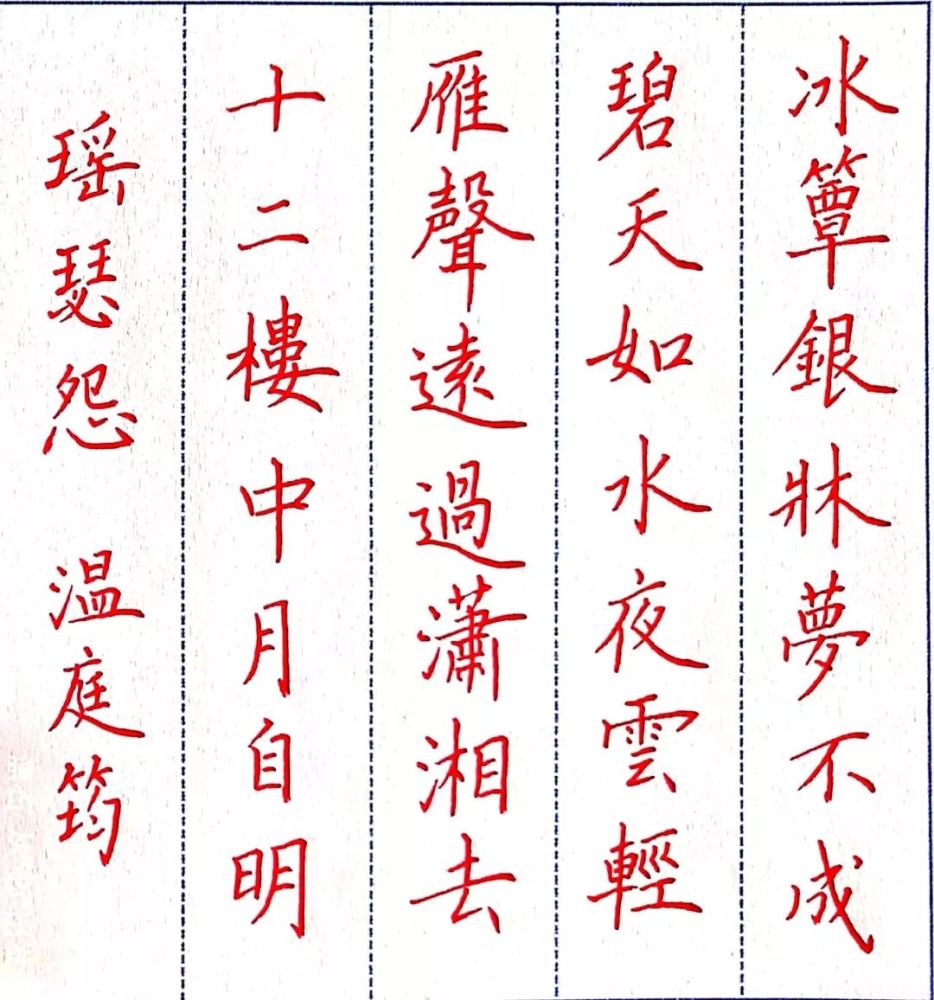 冰簟銀牀夢不成
碧天如水夜雲輕
雁聲遠過瀟湘去
十二樓中月自明
瑶瑟怨 温庭筠